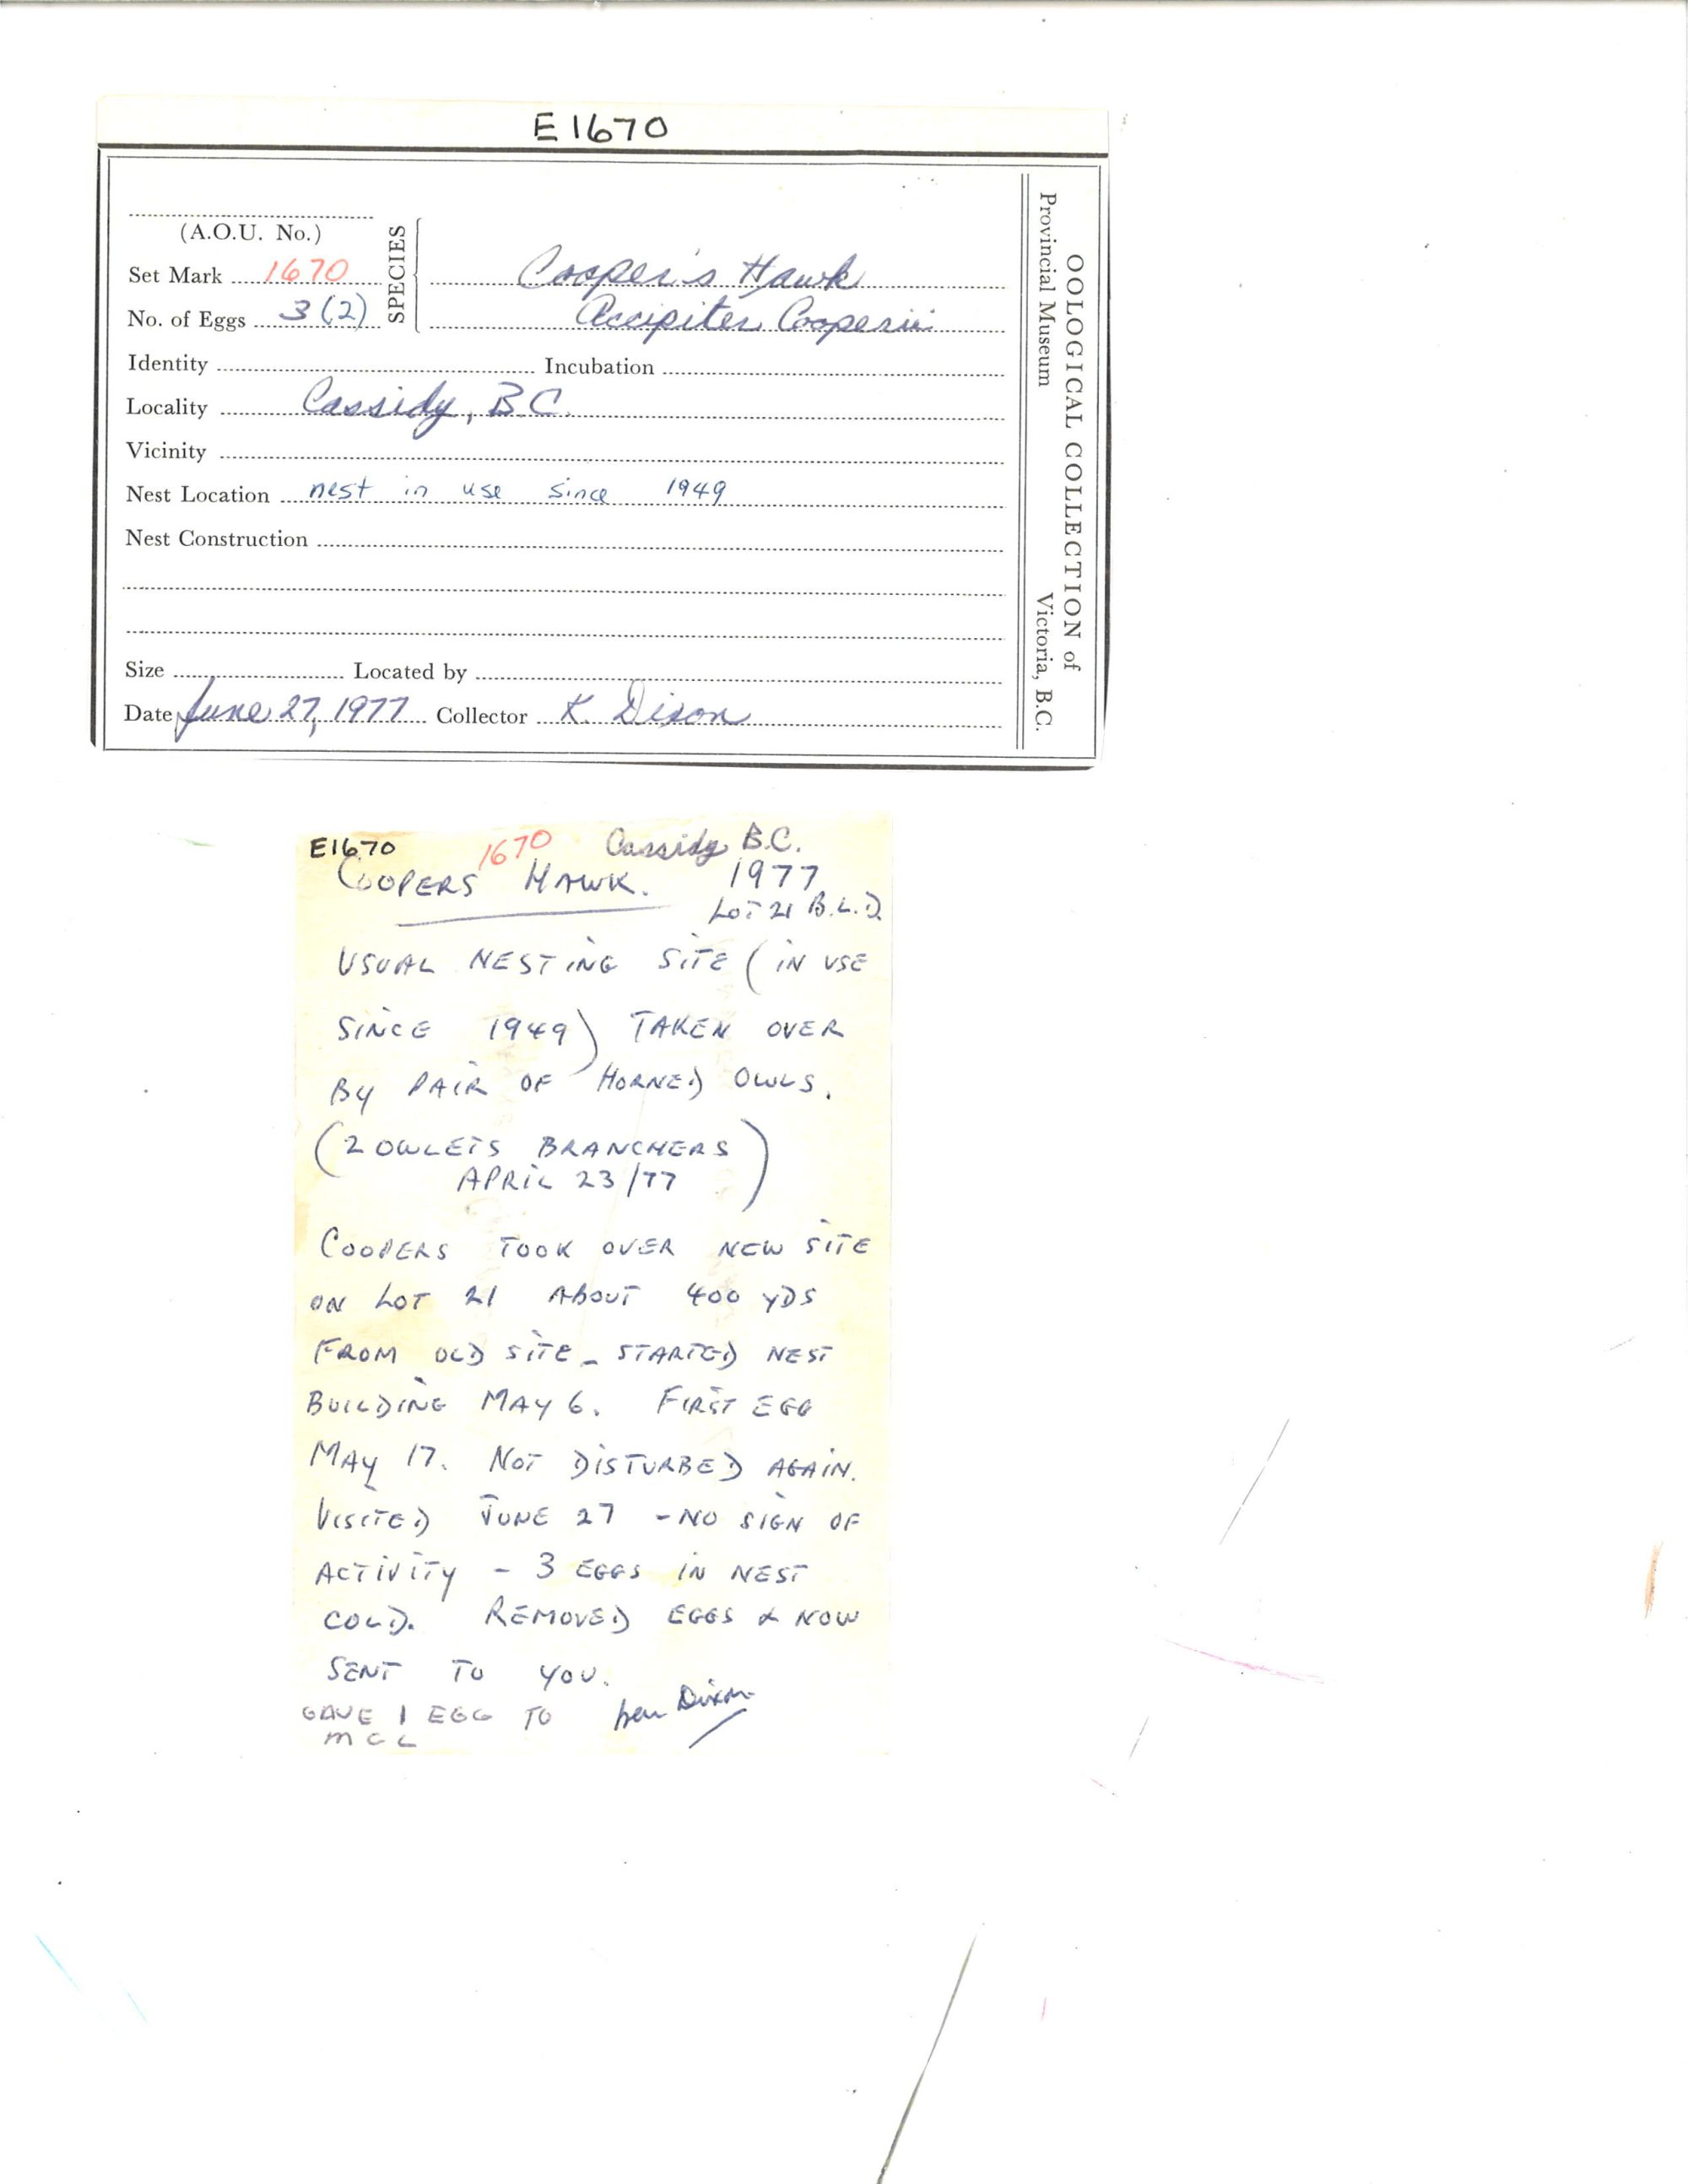 E1670
(A.O.U. No.)
SPECIES
Set Mark 1670
Cooper's Hawk
No. of Eggs 3 (2)
Accipiter Cooperii
Identity Incubation
Locality Cassidy, B.C.
Vicinity
Nest Location nest in use since 1949
Nest Construction
Size Located by
Date June 27, 1977 Collector K. Dixon
OOLOGICAL COLLECTION of
Provincial Museum Victoria, B.C.
E1670 1670 Cassidy B.C.
COOPERS HAWK. 1977
LOT 21 B.L.D.
USUAL NESTING SITE (IN USE
SINCE 1949) TAKEN OVER
BY PAIR OF HORNED OWLS.
(2 OWLETS BRANCHERS
APRIL 23/77)
COOPERS TOOK OVER NEW SITE
ON LOT 21 ABOUT 400 YDS
FROM OLD SITE - STARTED NEST
BUILDING MAY 6. FIRST EGG
MAY 17. NOT DISTURBED AGAIN.
VISITED JUNE 27 - NO SIGN OF
ACTIVITY - 3 EGGS IN NEST
COLD. REMOVED EGGS & NOW
SENT TO YOU.
GAVE 1 EGG TO Ken Dixon
MCL